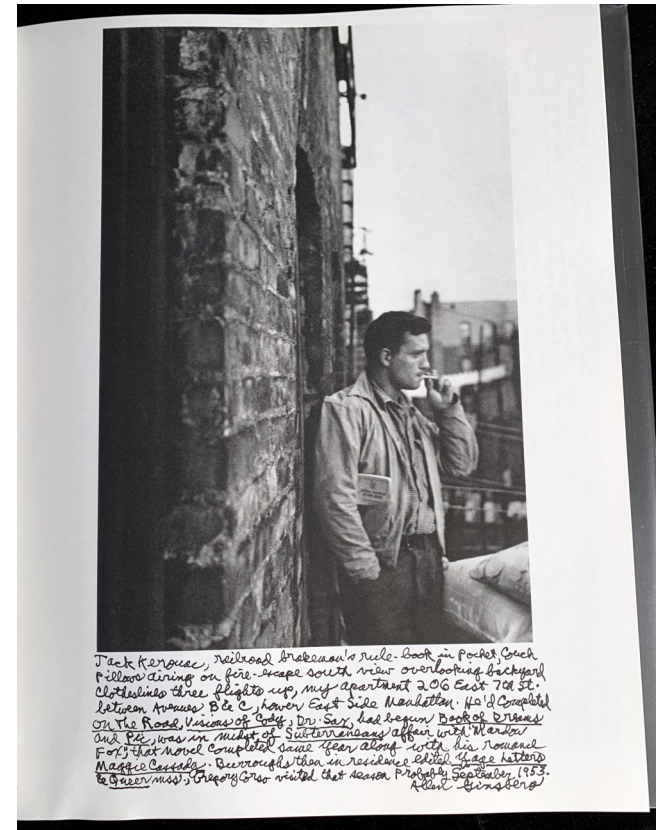 Jack Kerouac, railroad brakeman's rule-book in pocket, couch
pillows airing on fire-escape south view overlooking backyard
clotheslines three flights up, my apartment 206 East 7th St.
between Avenues B & C, Lower East Side Manhattan. He'd completed
On The Road, Visions of Cody, Dr. Sax, had begun Book of Dreams
and Pic, was in midst of Subterraneans affair with "Mardou
Fox", that novel completed same year along with his romance
Maggie Cassady. Burroughs then in residence edited Yage Letters
& Queer mss., Gregory Corso visited that season. Probably September 1953.
Allen Ginsberg